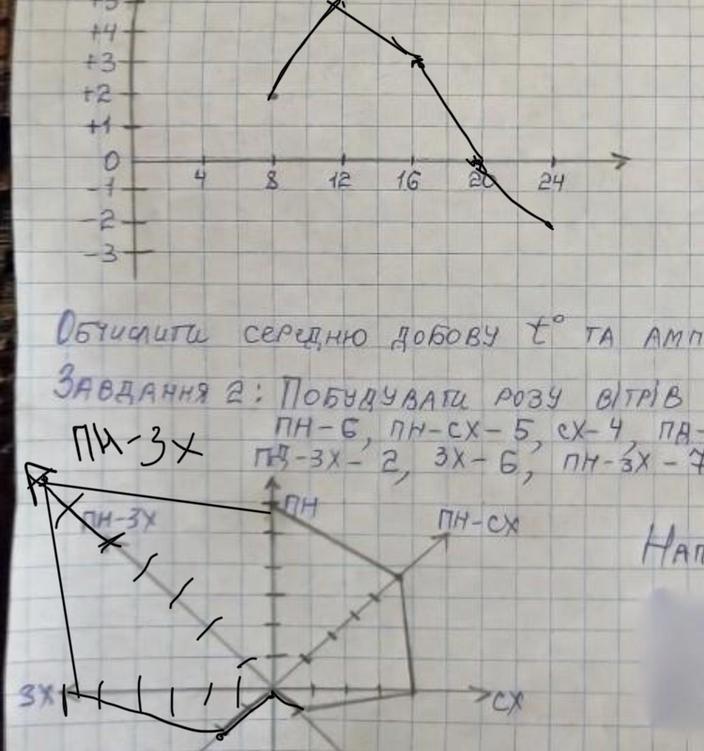 +5
+4
+3
+2
+1
0 4 8 12 16 20 24
-1
-2
-3
Обчислити середню добову t° та амп
Завдання 2: Побудувати розу вітрів
ПН-6, ПН-СХ-5, СХ-4, ПД-
ПД-ЗХ-2, ЗХ-6, ПН-ЗХ-7
ПН-ЗХ
ПН
ПН-ЗХ
ПН-СХ
Нап
ЗХ
СХ